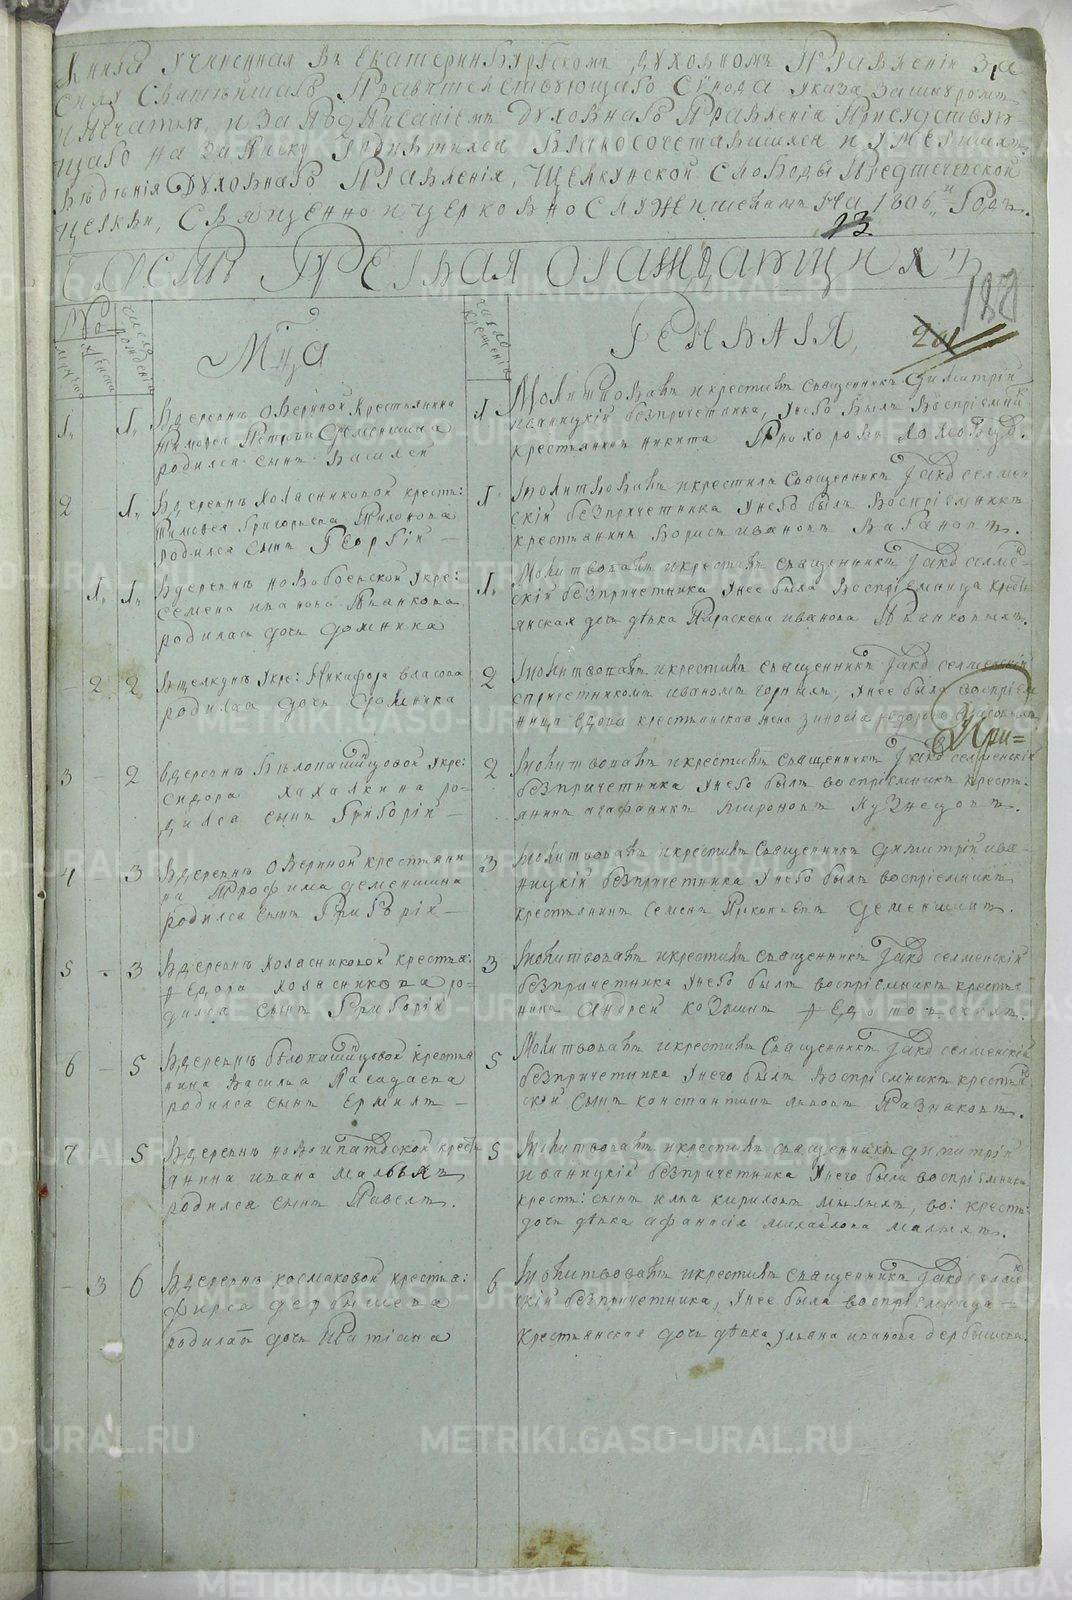 Книга Учиненная Въ Екатеринбургскомъ духовномъ Правленіи
силу Святѣйшаго Правительствующаго Сѵнода указа за шнуромъ
и печатью и за подписаніемъ духовнаго Правленія Присудствую
щаго на записку родившихся бракосочетавшихся и умершихъ
вѣдѣнія духовнаго Правленія, Щелкунской слободы Предтечевской
церкви, Священно и церковнослужителямъ На 1806й Годъ.
13
Часть Первая о раждающихся
180
№
мужеска
женска
число рожденія
Мца
число крещенія
Генваря
1.
1.
Вдеревнѣ Овериной крестьянина
Петрова Деменшина
родился сынъ Василей
1.
Молитвовалъ и крестилъ священникъ Димитрій
Иваницкій безпричетника, у него былъ восприемни
крестьянинъ Никита
2
1.
Вдеревнѣ Колясниковой кресть:
Тимофея Григорьева
родился сынъ Георгій
1.
Молитвовалъ и крестилъ священникъ Іаковъ селмен
скій безпричетника у него былъ восприемникъ
крестьянинъ Борисъ Ивановъ
1.
1.
Вдеревнѣ новоипатовской у кре:
Семена Иванова
родилась дочь Домника
1.
Молитвовалъ и крестилъ священникъ Іаковъ селмен
скій безпричетника у нее была восприемница кресть
янская дочь дѣвка Параскева Иванова
2
2
Вщелкунѣ у кре: Никифора власова
родилась дочь Домника
2
Молитвовалъ и крестилъ священникъ Іаковъ селменскій
спричетникомъ Иваномъ у нее была восприем
ница вдова крестьянская жена Зиновья Федорова
При=
3
2
вдеревнѣ у кре:
Сидора Хахалкина ро=
дился сынъ Григорій
2
Молитвовалъ и крестилъ священникъ Іаковъ селменскій
безпричетника у него былъ восприемникъ кресть
янинъ Агафоникъ Мироновъ Кузнецовъ.
4
3
Вдеревнѣ Овериной крестьяни
на Трофима Деменшина
родился сынъ Григорій
3
Молитвовалъ и крестилъ священникъ Димитрій ива
ницкій безпричетника у него былъ восприемникъ
крестьянинъ Семенъ Прокопьевъ Деменшинъ.
5
3
Вдеревнѣ Колясниковой крестья:
Федора Колясникова ро=
дился сынъ Григорій
3
Молитвовалъ и крестилъ священникъ Іаковъ селменскій
безпричетника у него былъ восприемникъ крестья
нинъ Андрей Козминъ
6
5
Вдеревнѣ крестья
нина Василья
родился сынъ Ермилъ
5
Молитвовалъ и крестилъ священникъ Іаковъ селменскій
безпричетника у него былъ восприемникъ крестьян
ской сынъ Константинъ Львовъ
7
5
Вдеревнѣ новоипатовской кресть
янина Ивана Малыхъ
родился сынъ Павелъ.
5
Молитвовалъ и крестилъ священникъ Димитрій
Иваницкій безпричетника у него были восприемники
кресть: сынъ Илья Кириловъ Малыхъ, во: кресть:
дочь дѣвка Афанасія Михайлова Малыхъ.
3
6
Вдеревнѣ Космаковой крестья:
Фирса Дербышева
родилась дочь Татіана
6
Молитвовалъ и крестилъ священникъ Іаковъ селмен
скій безпричетника, у нее была восприемница
крестьянская дочь дѣвка Ульяна Иванова Дербышева.
METRIKI.GASO-URAL.RU